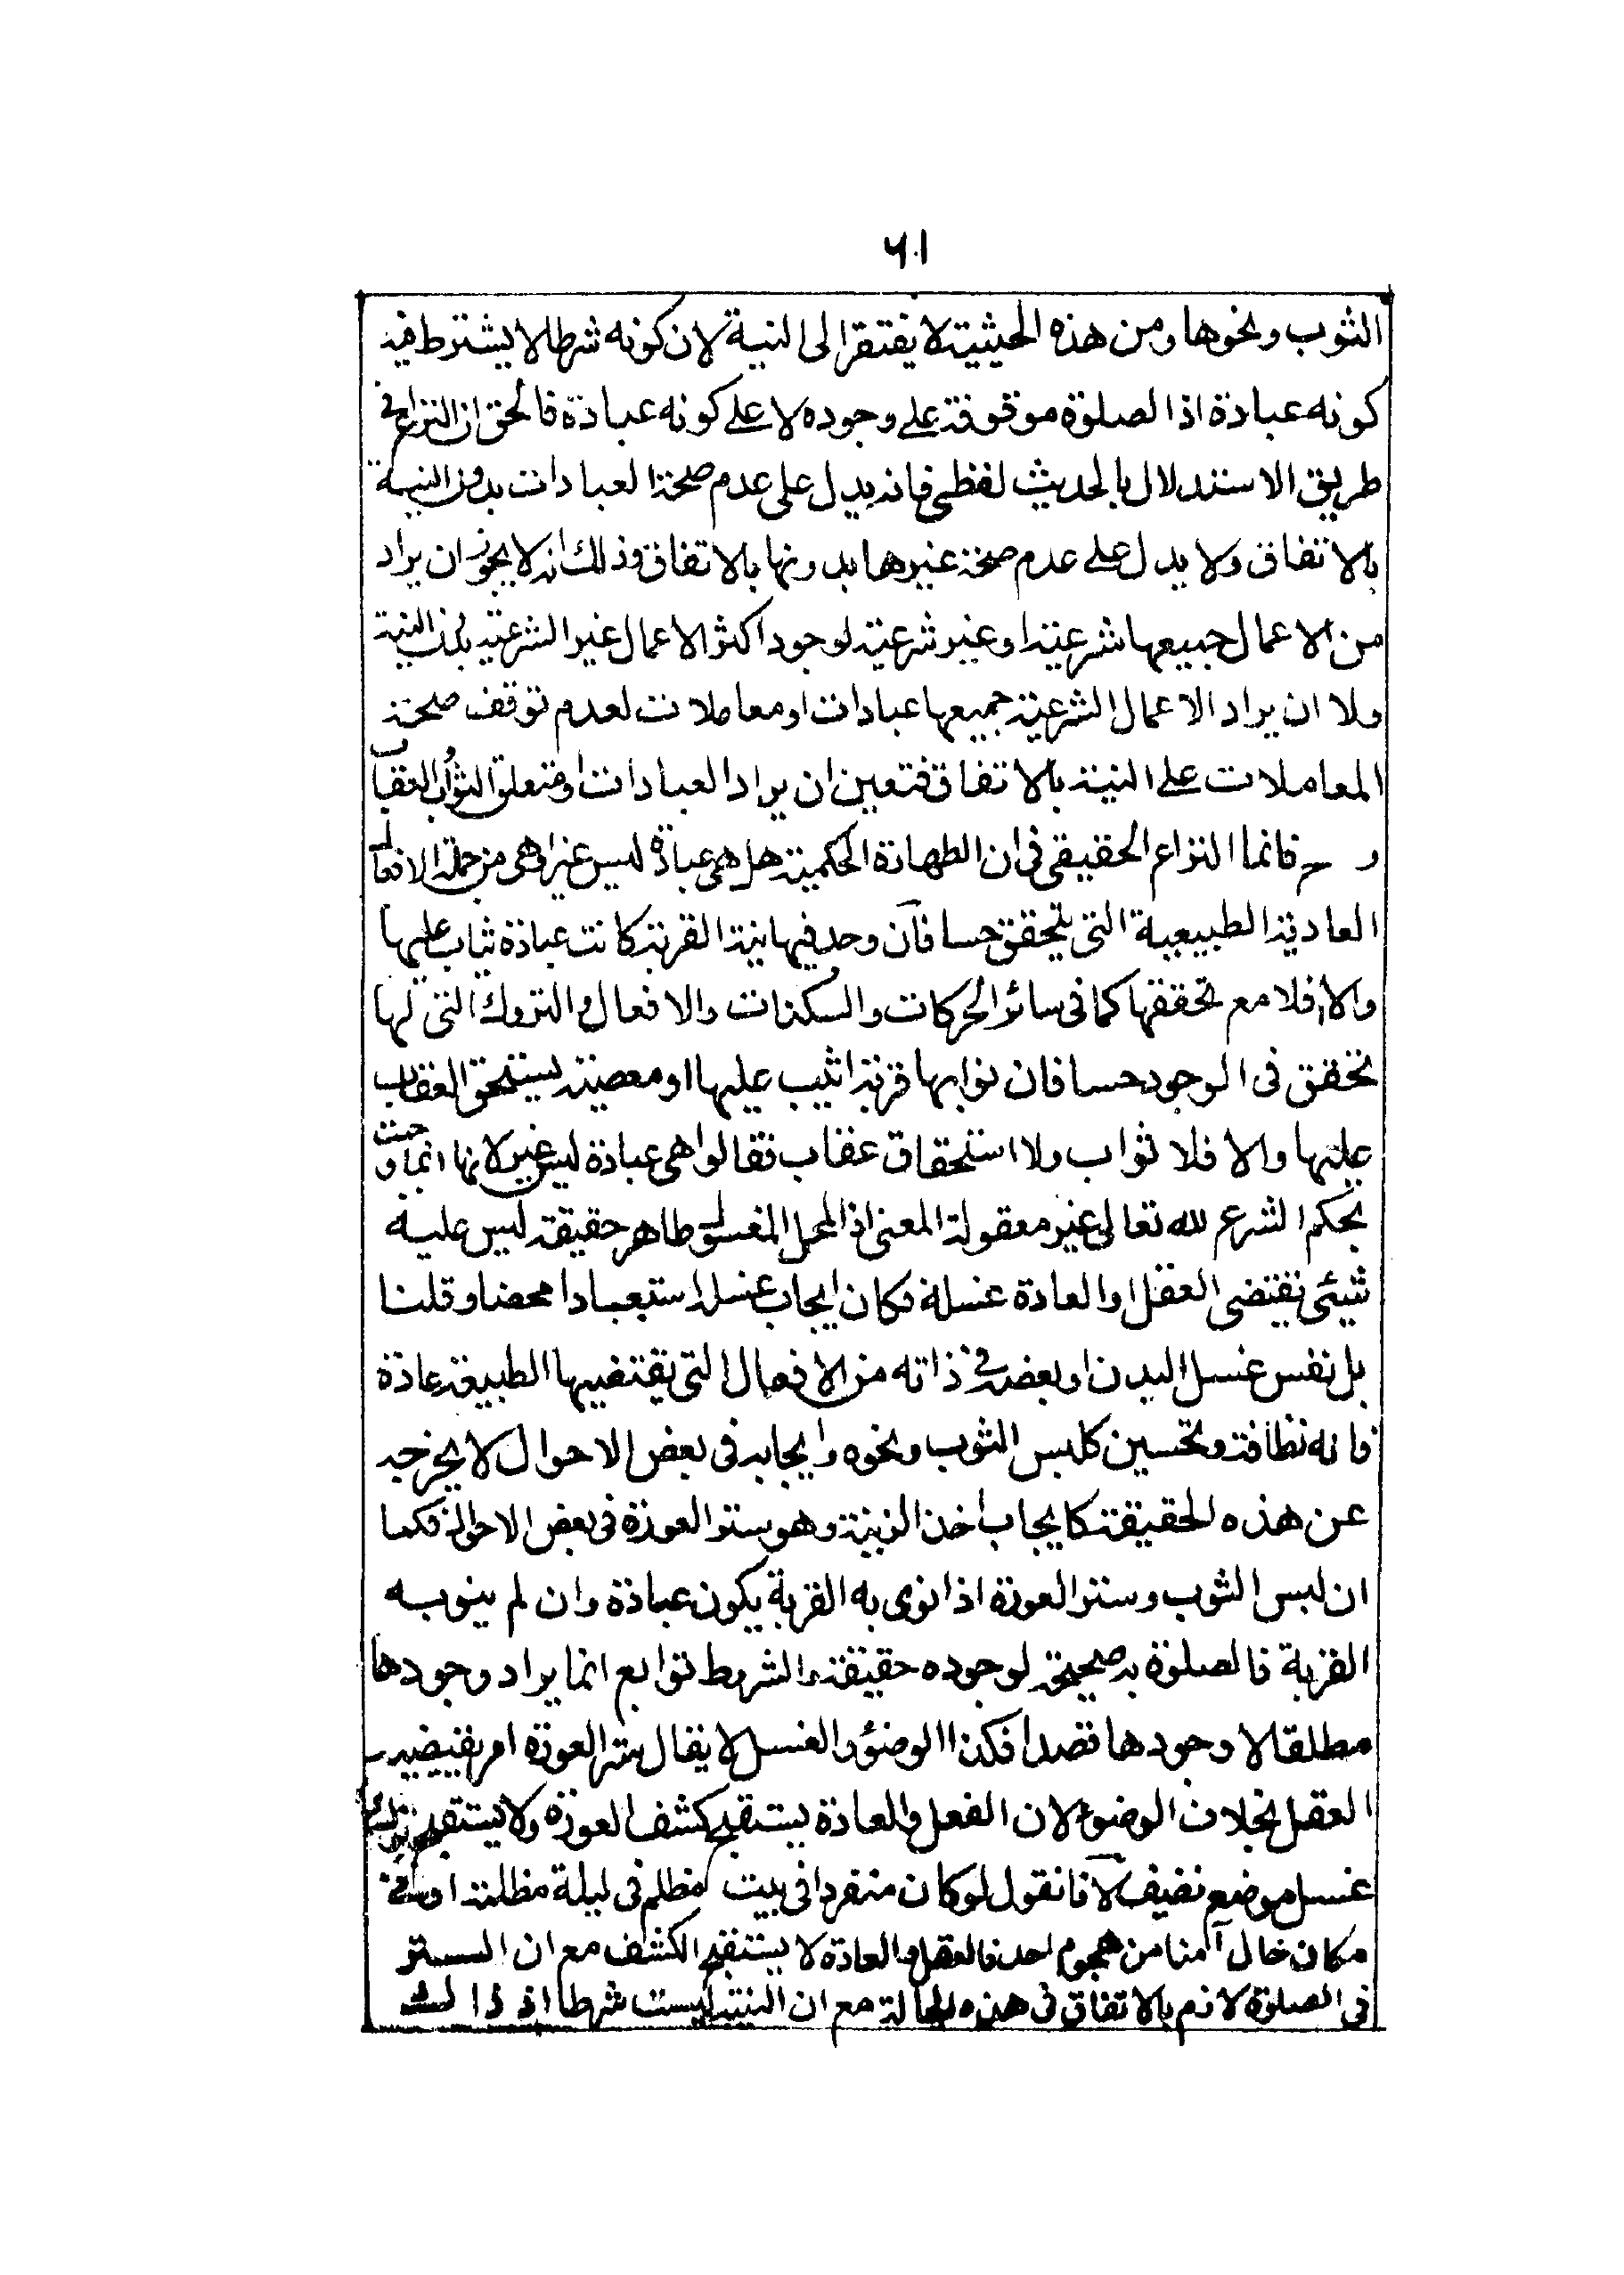 ٦١
الثوب ونحوها ومن هذه الحيثية لا يفتقر الى النية لان كونه شرطا لا يشترط فيه
كونه عبادة اذ الصلوة موقوفة على وجوده لا على كونه عبادة فالحق ان النزاع فى
طريق الاستدلال بالحديث لفظى فانه يدل على عدم صحة العبادات بدون النية
بالاتفاق ولا يدل على عدم صحة غيرها بدونها بالاتفاق وذلك انه لا يجوز ان يراد
من الاعمال جميعها شرعية او غير شرعية لوجود اكثر الاعمال غير الشرعية بدون النية
ولا ان يراد الاعمال الشرعية جميعها عبادات او معاملات لعدم توقف صحة
المعاملات على النية بالاتفاق فتعين ان يراد العبادات ومتعلق الثواب والعقاب
و ح فانما النزاع الحقيقى فى ان الطهارة الحكمية هل هى عبادة ليس غير او هى من جملة الافعال
العادية الطبيعية التى يتحقق حسا فان وجد فيها نية القربة كانت عبادة يثاب عليها
والا فلا مع تحققها كما فى سائر الحركات والسكنات والافعال والتروك التى لها
تحقق فى الوجود حسا فان نوى بها قربة اثيب عليها او معصية يستحق العقاب
عليها والا فلا ثواب ولا استحقاق عقاب فقالوا هى عبادة ليس غير لانها انما وجبت
بحكم الشرع لله تعالى غير معقولة المعنى اذ المحل المغسول طاهر حقيقة ليس عليه
شيئى تقتضى العقل او العادة غسله فكان ايجاب غسله استعبادا محضا وقلنا
بل نفس غسل البدن او بعضه فى ذاته من الافعال التى يقتضيها الطبيعة عادة
فانه نظافة وتحسين كلبس الثوب ونحوه وايجابه فى بعض الاحوال لا يخرجه
عن هذه الحقيقة كايجاب اخذ الزينة وهو ستر العورة فى بعض الاحوال فكما
ان لبس الثوب وستر العورة اذا نوى به القربة يكون عبادة وان لم ينو به
القربة فالصلوة به صحيحة لوجوده حقيقة والشروط توابع انما يراد وجودها
مطلقا لا وجودها قصدا فكذا الوضوء والغسل لا يقال ستر العورة امر يقتضيه
العقل بخلاف الوضوء لان الفعل والعادة يستقبح كشف العورة ولا يستقبح ترك
غسل موضع نضيف لانا نقول لو كان منفردا فى بيت مظلم فى ليلة مظلمة او فى
مكان خال آمنا من هجوم احد فالعقل والعادة لا يستقبح الكشف مع ان الستر
فى الصلوة لازم بالاتفاق فى هذه الحالة مع ان النية ليست شرطا اذ ذالك